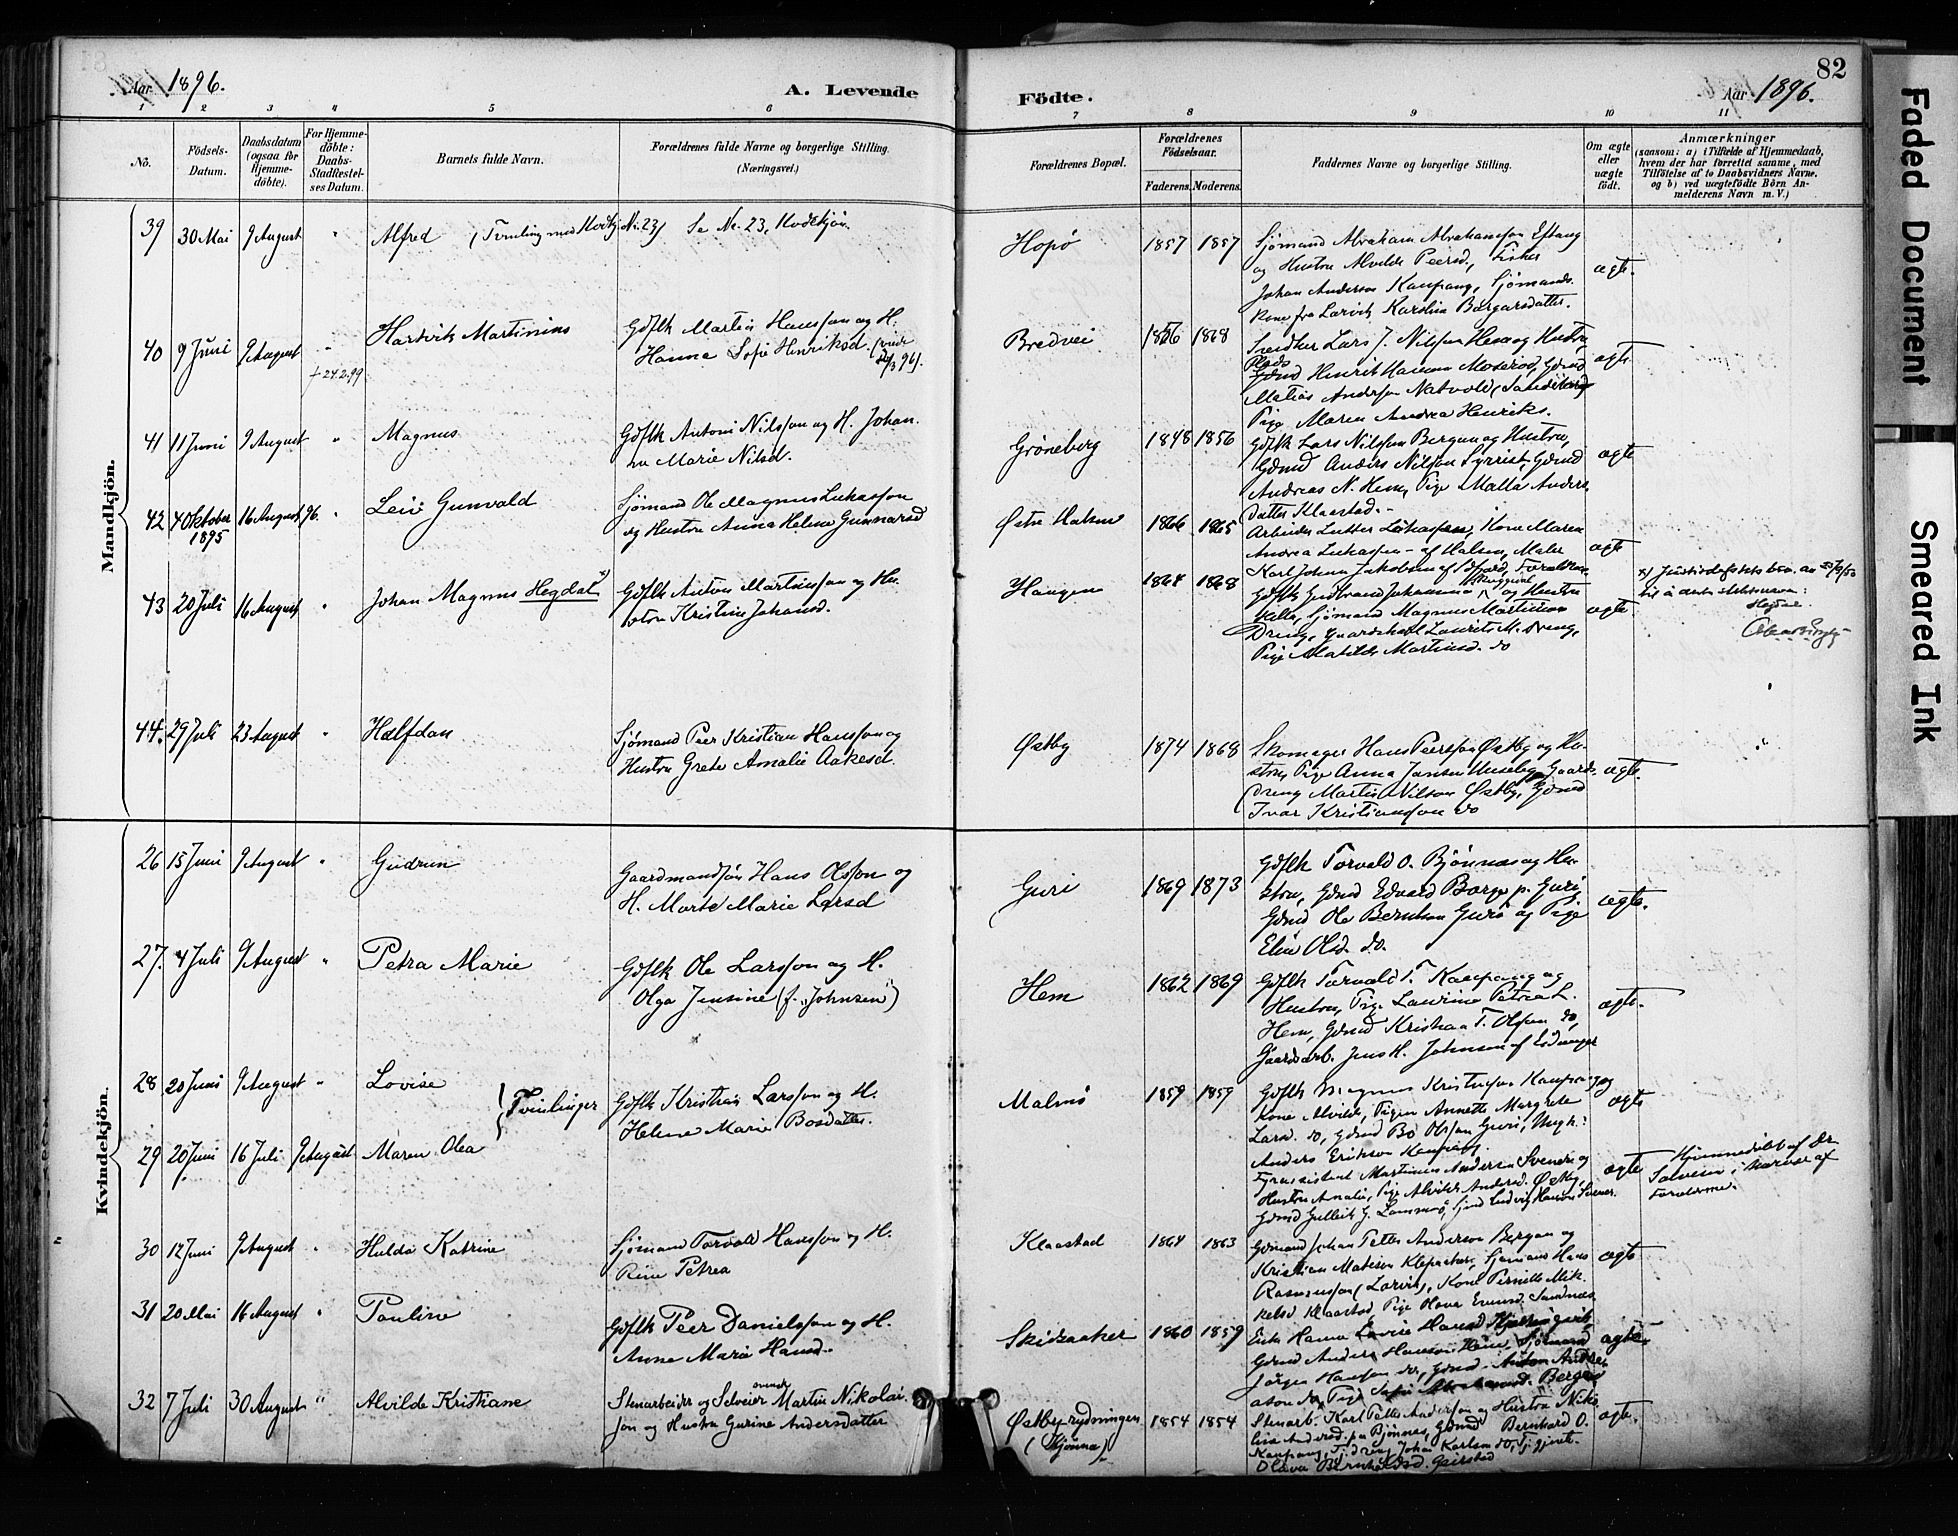 Aar 1896.
A. Levende
Födte.
Aar 1896.
82
1 2 3 4 5 6 7 8 9 10 11
No.
Födsels-
Datum.
Daabsdatum
(ogsaa for
Hjemme-
döbte).
For Hjemme-
döbte:
Daabs-
Stadfæstel-
ses Datum.
Barnets fulde Navn.
Forældrenes fulde Navne og borgerlige Stilling.
(Næringsvei.)
Forældrenes Bopæl.
Forældrenes
Födselsaar.
Faderens.
Moderens.
Faddernes Navne og borgerlige Stilling.
Om ægte
eller
uægte
födt.
Anmærkninger
(saasom: a) i Tilfælde af Hjemmedaab,
hvem der har forrettet samme, med
Tilföielse af to Daabsvidners Navne,
og b) ved uægtefödte Börn An-
melderens Navn m. V.)
Mandkjön.
39 30 Mai 9 August " Alfred (Tvilling med Kvdkj. Nr. 23) Se Nr. 23, Kvdekjøn. Hopø 1857 1857
Sjømand Abraham Abrahamson Eftang
og Hustru Alvilde Peersd., Fisker
Johan Anderson Kaupang, Sjømands-
kone fra Larvik Karolina Borgarsdatter.
ægte.
40 9 Juni 9 August " † 24.2.99 Hartvik Martinius
Gdflk Martin Hansson og H.
Hanna Sofie Henriksd.
Bredvei 1856 1868
Lars J. Nilsson Hem og Hustru,
Plads
Gdmd Henrik Hanson Moserød, Gdmd
Matias Anderson Natvold (Sandeherred)
Pige Maren Andrea Henriks.
ægte
41 11 Juni 9 August " Magnus
Gdflk Antoni Nilsson og H. Johan-
na Marie Nilsd.
Grøneberg 1848 1856
Gdflk Lars Nilsson Bergan og Hustru,
Gdmd Anders Nilsson Syrrist, Gdmd
Andreas N. Hem, Pige Malla Anders-
datter Klaastad.
ægte
42 4 Oktober 1895 16 August 96. " Leiv Gunvald
Sjømand Ole Magnus Lukasson
og Hustru Anna Helene Gunnarsd
Østre Halsen 1866 1865
Arbeider Lutter Lukassen, Kone Maren
Andrea Lukassen - af Halsen, Maler
Karl Johan Jakobsen af
ægte
43 20 Juli 16 August " Johan Magnus Hegdal x)
Gdflk Anton Martinsson og Hu-
stru Kristine Johansd.
Haugen 1864 1868
Gdflk Gudbrand Johannsen og Hustru
Sjømand Magnus Martinson
Dreng, Gaardskarl Laurits M. Dreng,
Pige Matilde Martinsd. do
ægte
x) Justisdepartets bev. av
til å
44. 29 Juli 23 August " Halfdan
Sjømand Peer Kristian Hansson og
Hustru Grete Amalie Aakesd.
Østby 1874 1868
Skomager Hans Peersson Østby og Hu-
stru, Pige Anna Jansen Huseby, Gaards-
dreng Martin Nilson Østby, Gdmd
Ivar Kristiansson do
ægte.
Kvindekjön.
26 15 Juni 9 August " Gudrun
Gaardmandssøn Hans Olsson og
H. Marte Marie Larsd
Guri 1869 1873
Gdflk Torvald O. Bjønnes og Hu-
stru, Gdmd Edvard Borge p. Guri,
Gdmd Ole Berntson Guri og Pige
Elin Olsd. do.
ægte.
27. 4 Juli 9 August " Petra Marie
Gdflk Ole Larsson og H.
Olga Jensine (f. "Johnsen")
Hem 1862 1869
Gdflk Torvald T. Kaupang og
Hustru, Pige Laurine Petrea L.
Hem, Gdmd Kristian T. Olsson do,
Gaardsarb. Jens H. Johnsen af Eidanger
ægte.
28 20 Juni 9 August " Lovise
Tvillinger
Gdflk Kristian Larsson og H.
Helene Marie Bosdatter.
Malmø 1859 1859
Gdflk Magnus Kristenson Kaupang og
Kone Alvilde, Pigen Annette Margrete
Larsd. do, Gdmd Bo Olsson Guri, Ungk:
Anders Erikson Kaupang.
ægte
29 20 Juni 16 Juli 9 August Maren Olea
Fyrassistent Martinius Andersen Svenør og
Hustru Amalie, Pige Alvilde Andersd. Østby,
Gdmd Gullik G. Lammø, Ludvik Hanson Svenør.
ægte
Hjemmedøbt af Dr
Salvesen i Nærvær af
Forældrene.
30 12 Juni 9 August " Hulda Katrine
Sjømand Torvald Hansson og H.
Rine Petrea
Klaastad 1864 1863
Gdmand Johan Petter Anderson Bergan og
Kristian Matison Klepaker, Sjømand Hans
Rasmusson (Larvik), Kone Pernille Mik-
kelsd Klaastad Pige Hanna
ægte
31 20 Mai 16 August " Pauline
Gdflk Peer Danielsson og H.
Anne Marie Hansd.
Skisaaker 1860 1859
Enke Hanna Lovise Hansd
Gdmd Anders Hanson Hem, Sjømand
Jørgen Hansson do, Gdmd Anton
ægte.
32 7 Juli 30 August " Alvilde Kristiane
Stenarbeider og Selveier Martin Nikolai-
son og Hustru Gurine Andersdatter
Østbyrydningen
(Kjønna)
1854 1854
Stenarb. Karl Petter Anderson og Hustru Niko-
line Andersd. paa Bjønnes, Gdmd Bernhard O.
Kaupang, Johan Karlson do, Tj.gjente
Olava Bernhardsd. Geirstad
ægte.
Faded Document
Smeared Ink